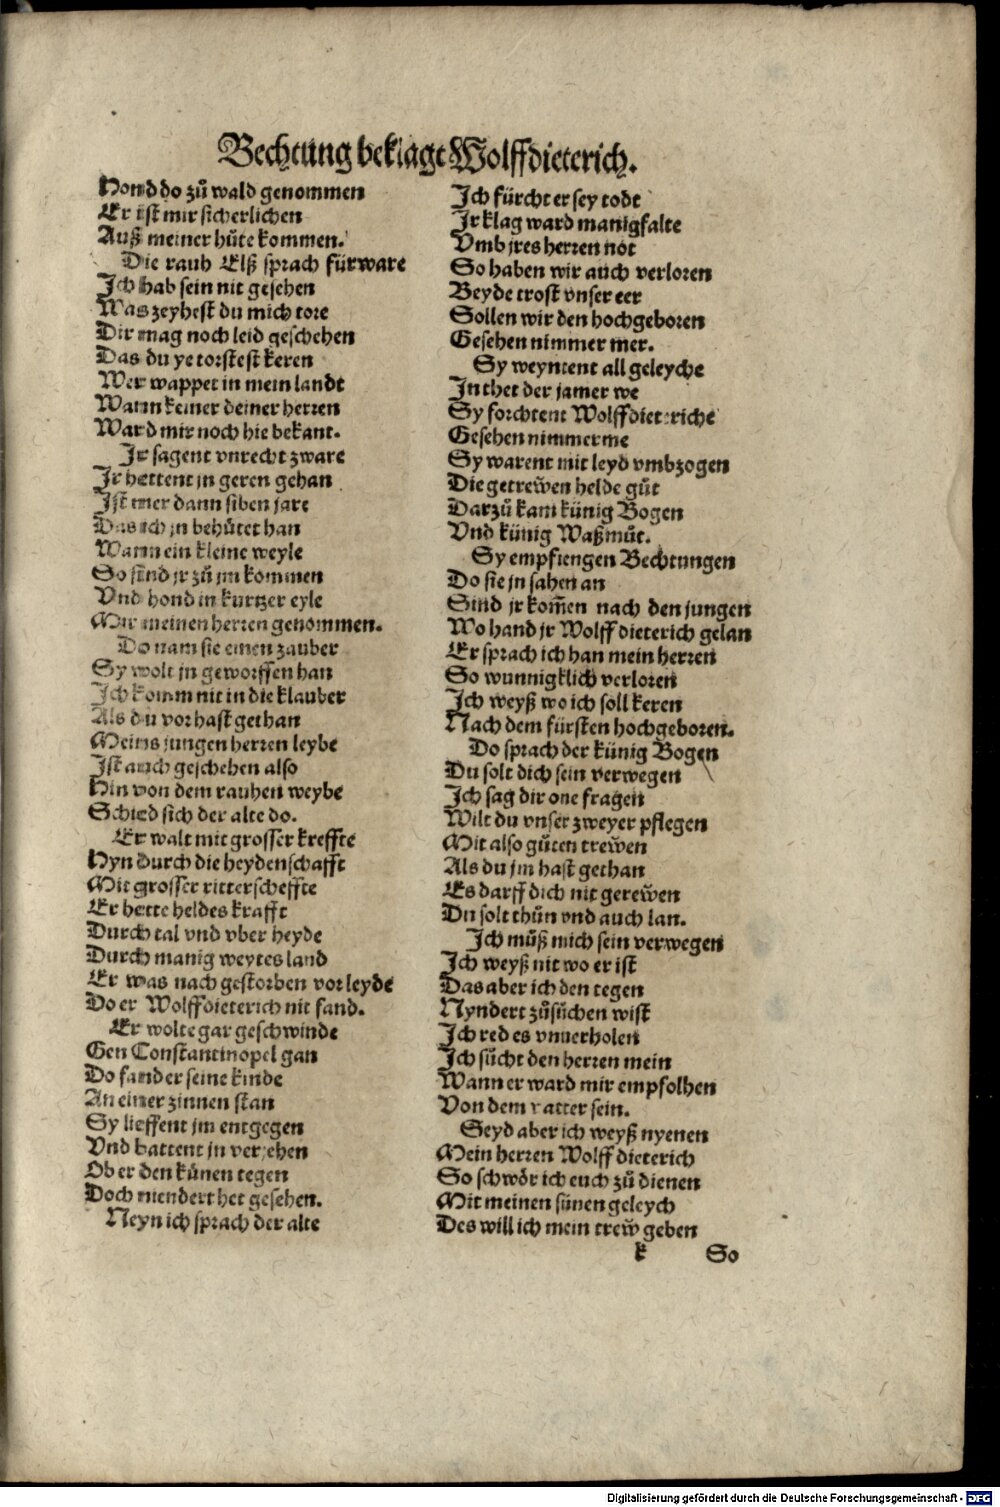 Bechtung beklagt Wolffdieterich.
Hond do zů wald genommen
Er ist mir sicherlichen
Auß meiner hůte kommen.
Die rauh Elß sprach fürware
Ich hab sein nit gesehen
Was zeyhest du mich tore
Dir mag noch leid geschehen
Das du ye torstest keren
Wer wappet in mein landt
Wann keiner deiner herren
Ward mir noch hie bekant.
Ir sagent vnrecht zware
Ir hettent jn geren gehan
Ist mer dann siben jare
Das ich jn behůtet han
Wann ein kleine weyle
So sind jr zů jm kommen
Vnd hond in kurtzer eyle
Mir meinen herren genommen.
Do nam sie einen zauber
Sy wolt jn geworffen han
Ich komm nit in die klauber
Als du vor hast gethan
Meins jungen herren leybe
Ist auch geschehen also
Hin von dem rauhen weybe
Schied sich der alte do.
Er walt mit grosser kreffte
Hyn durch die heydenschafft
Mit grosser ritterscheffte
Er hette heldes krafft
Durch tal vnd vber heyde
Durch manig weytes land
Er was nach gestorben vor leyde
Do er Wolffdieterich nit fand.
Er wolte gar geschwinde
Gen Constantinopel gan
Do fand er seine kinde
An einer zinnen stan
Sy lieffent jm entgegen
Vnd battent jn verjehen
Ob er den künen tegen
Doch niendert het gesehen.
Neyn ich sprach der alte
Ich fürcht er sey todt
Ir klag ward manigfalte
Vmb jres herren not
So haben wir auch verloren
Beyde trost vnser eer
Sollen wir den hochgeboren
Gesehen nimmer mer.
Sy weyntent all geleyche
In thet der jamer we
Sy forchtent Wolffdieteriche
Gesehen nimmer me
Sy warent mit leyd vmbzogen
Die getreẅen helde gůt
Darzů kam künig Bogen
Vnd künig Waßmůt.
Sy empfiengen Bechtungen
Do sie jn sahen an
Sind jr kom̄en nach den jungen
Wo hand jr Wolff dieterich gelan
Er sprach ich han mein herren
So wunnigklich verloren
Ich weyß wo ich soll keren
Nach dem fürsten hochgeboren.
Do sprach der künig Bogen
Du solt dich sein verwegen
Ich sag dir one fragen
Wilt du vnser zweyer pflegen
Mit also gůten treẅen
Als du jm hast gethan
Es darff dich nit gereẅen
Du solt thůn vnd auch lan.
Ich můß mich sein verwegen
Ich weyß nit wo er ist
Das aber ich den tegen
Nyndert zůsůchen wist
Ich red es vnuerholen
Ich sůcht den herren mein
Wann er ward mir empfolhen
Von dem vatter sein.
Seyd aber ich weyß nyenen
Mein herren Wolff dieterich
So schwör ich euch zů dienen
Mit meinen sünen geleych
Des will ich mein treẅ geben
k So
Digitalisierung gefördert durch die Deutsche Forschungsgemeinschaft - DFG